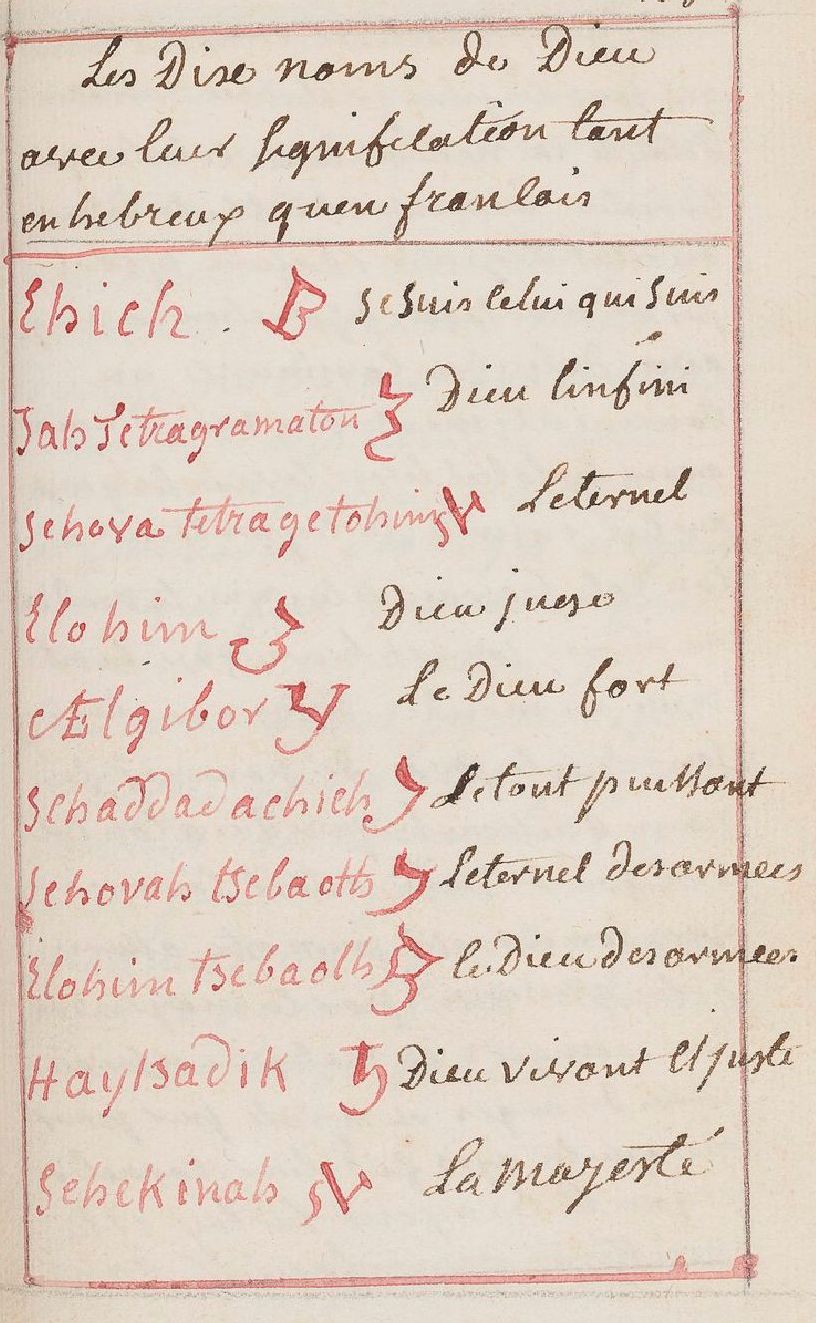 Les Dixe noms de Dieu
avec leur signification tant
en hebreux quen francais
Ehieh Je suis celui qui suis
Jah Tetragramaton Dieu linfini
Jehova tetragetohim Leternel
Elohim Dieu juge
Ælgibor Le Dieu fort
Schaddadachieh Le tout puissant
Jehovah tsebaoth Leternel des armees
Elohim tsebaoth le Dieu des armees
Haytsadik Dieu vivant et juste
Schekinah La majesté